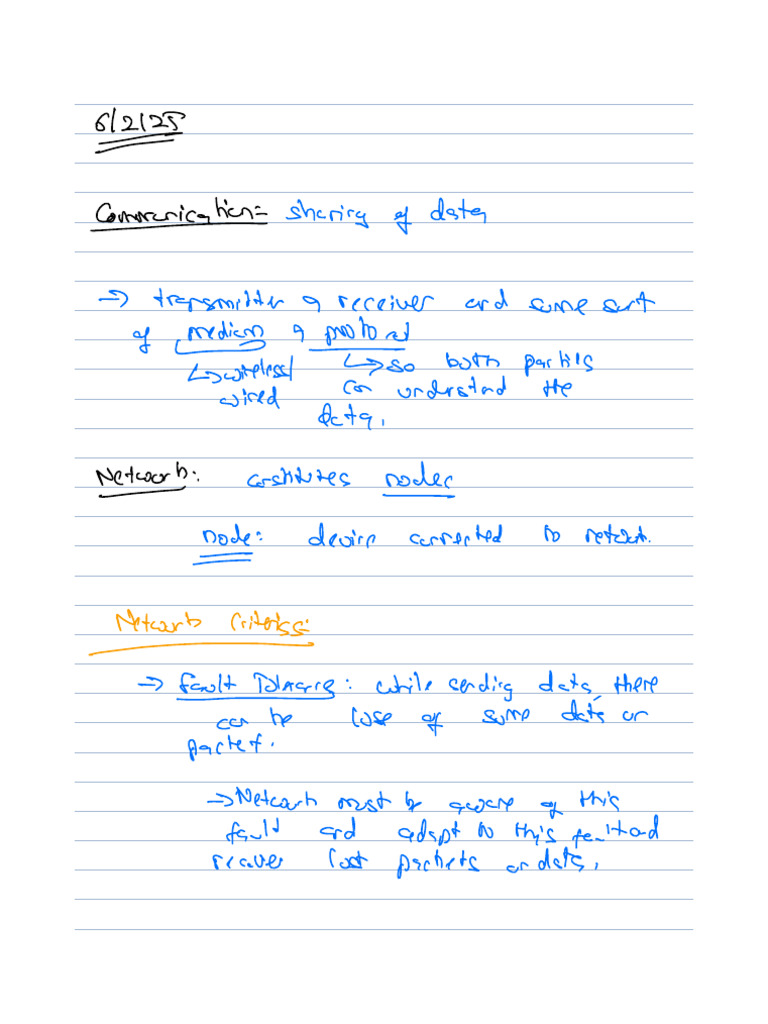 6/2/25
Communication= sharing of data
→ transmitter & receiver and some sort
of medium & protocol
↳wireless/ ↳so both parties
wired can understand the
data.
Network: constitutes nodes
node: device connected to network.
Network Criterias=
→ fault Tolerance: while sending data, there
can be lose of some data or
packet.
→Network must be aware of this
fault and adapt to this fault and
recover lost packets or data.